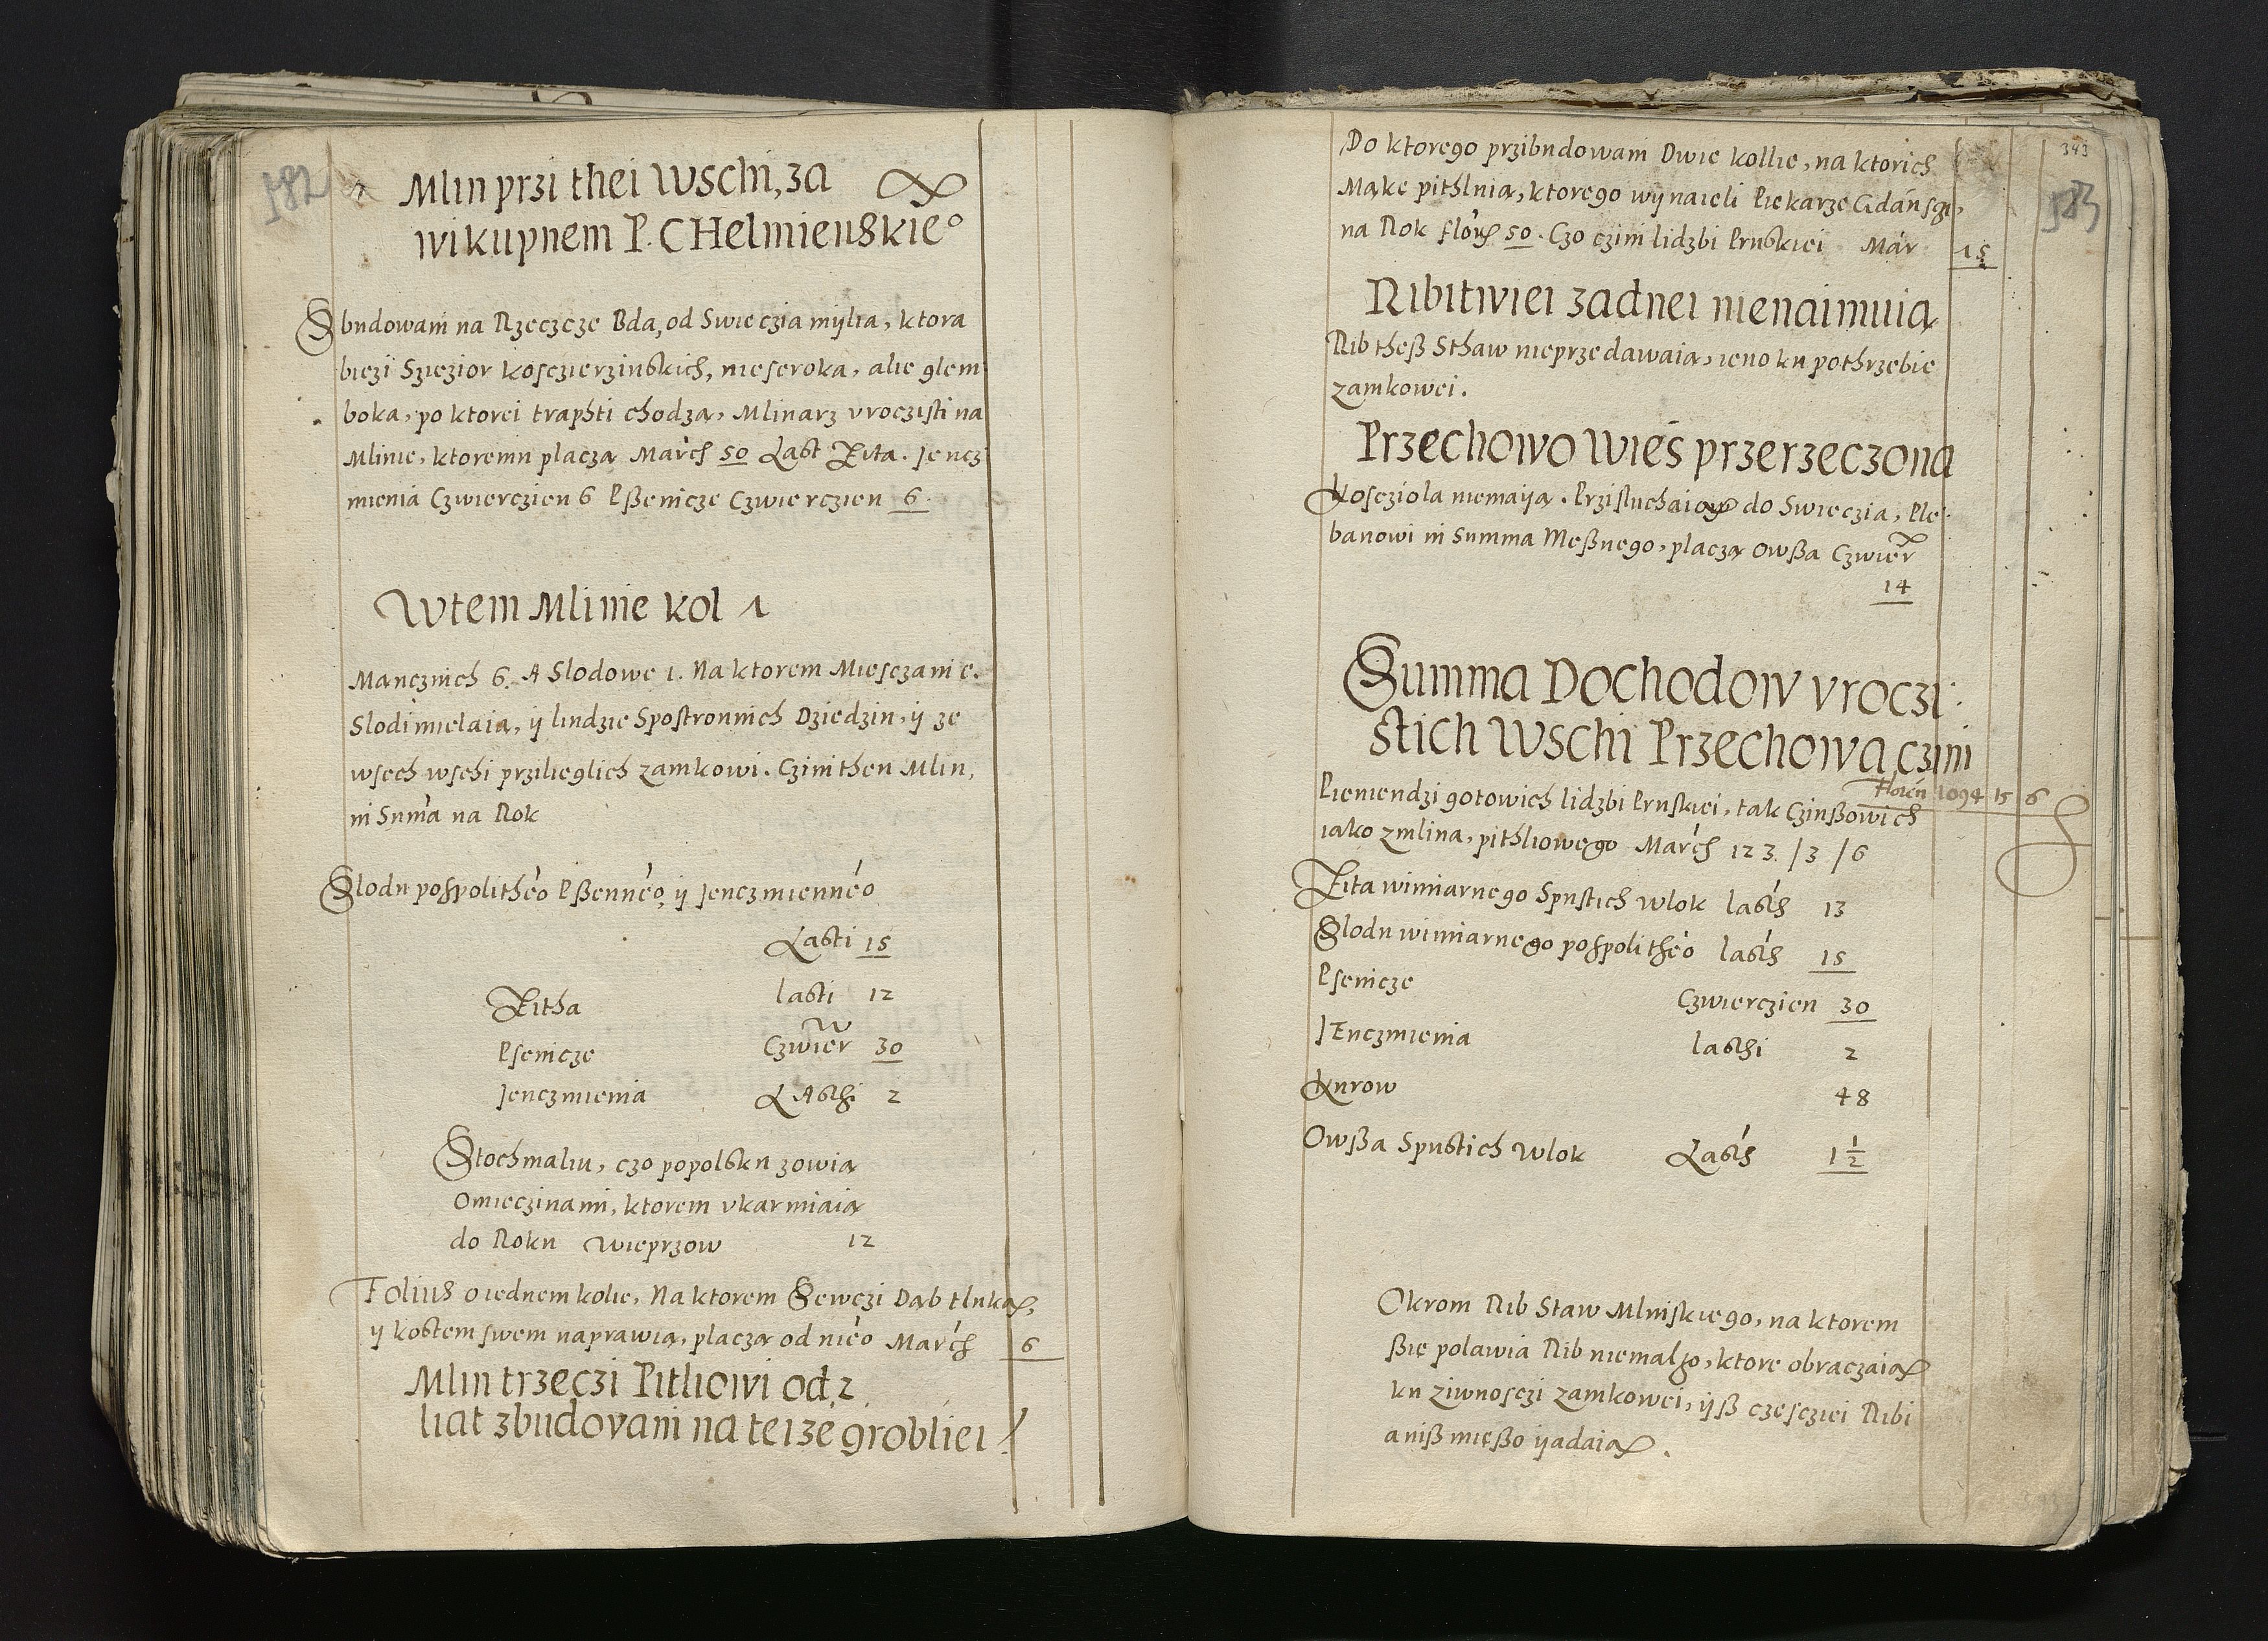 582
Mlin przi thei Wschi, za
wikupnem P. CHelmienskie°
Sbudowani na Rzeczcze Bda, od Swieczia mÿlia, ktora
biezi Sziezior Koscierzinskich, nieseroka, alie glem
boka, po ktorei traphti chodzą, Mlinarz vroczisti na
Mlinie, ktoremu placzą March 50 Last Zita. Jencz
mienia Czwierczien 6 Pßenicze Czwierczien 6.
Wtem Mlinie kol 1
Mancznich 6. A Slodowe 1. Na ktorem Miesczanie.
Slodi mielaią, ÿ liudzie Spostronnich Dziedzin, ÿ ze
wsech wschi przilieglich zamkowi. Czini then Mlin,
ni Suma na Rok
Slodu pospolitheo Pßenneo, ÿ Jenczmienneo
Lasti 15
Zitha lasti 12
Psenicze Czwier 30
Jenczmienia LAsthi 2
Stochmaliu, czo popolsku zowią
Omieczinami, ktorem vkarmiaią
do Roku Wieprzow 12
Folius o iednem kolie, Na ktorem Sewczi Dąb tluką,
ÿ kostem swem naprawią, placzą od nieo March 6
Mlin trzeczi Pitliowi od 2
liat zbudovani na teize grobliei
343
583
Do ktorego przibudowani Dwie kollie, na ktorich
Mąke pithlnią, ktorego wÿnaieli Piekarze Gdánsczi,
na Rok flor 50. Czo czini lidzbi Pruskiei Mar 15
Ribitwiei zadnei nienaimuią
Rib theß Sthaw nieprzedawaią, ieno ku pothrzebie
zamkowei.
Przechowo Wies przerzeczona
Kosciola niemaÿą. Przisluchaią do Swieczia, Ple
banowi in Summa Meßnego, placzą Owßa Czwier
14
Summa Dochodow vroczi
stich Wschi Przechowa czini
Floren 1094 15 6
Pieniendzi gotowich lidzbi Pruskiei, tak Czinßowich
iako zmlina, pithliowego March 123 / 3 / 6
Zita wimiarnego Spustich wlok lasth 13
Slodu wimiarnego pospolitheo lasth 15
Psenicze Czwierczien 30
JEnczmienia lasthi 2
Kurow 48
Owßa Spustich Wlok Lasth 1 1/2
Okrom Rib Staw Mlinskiego, na ktorem
ßię polawia Rib niemalo, ktore obraczaią
ku ziwnosczi zamkowei, ÿß czesciei Ribi
aniß mięßo ÿadaią.